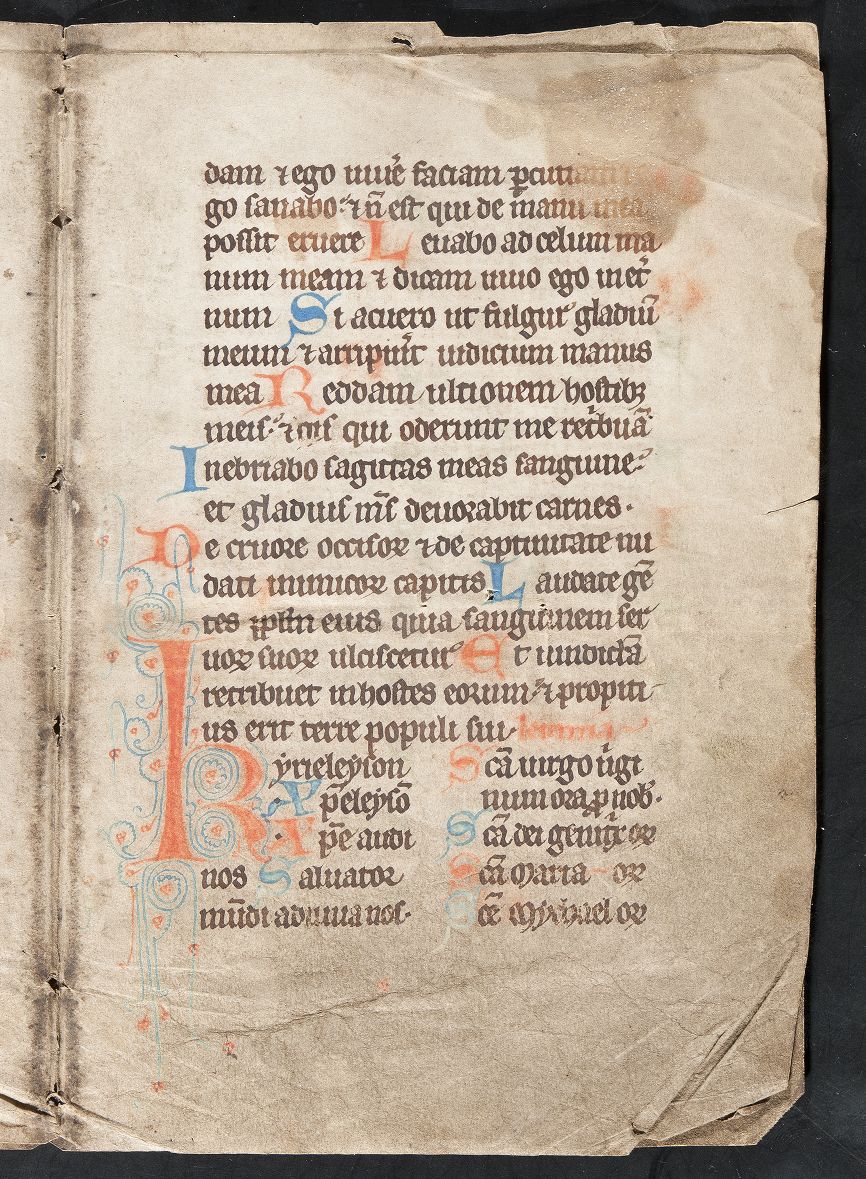 dam ⁊ ego uiuẽ faciam ꝑcutiam
go sanabo ⁊ ñ est qui de manu mea
possit eruere Leuabo ad celum ma
num meam ⁊ dicam uiuo ego in et̃
num Si acuero ut fulgur gladiũ
meum ⁊ arripuit̃ iudicium manus
mea Reddam ultionem hostibꝫ
meis ⁊ qui oderunt me ret̃buã
Inebriabo sagittas meas sanguine
et gladius m̃s deuorabit carnes.
De cruore occisoꝝ ⁊ de captiuitate nu
dati inimicoꝝ capitis Laudate gẽ
tes eius quia sanguinem ser
uoꝝ suoꝝ ulciscetur Et uindictã
retribuet in hostes eorum ⁊ propiti
us erit terre populi sui.
Kyrieleyson
Xp̃eleysõ
Xp̃e audi
nos Saluator
mũdi adiuua nos.
Sc̃a uirgo ũgi
num ora ꝓ nob.
Sc̃a dei genitͥx or
Sc̃a Maria or
Sc̃e Mychael or